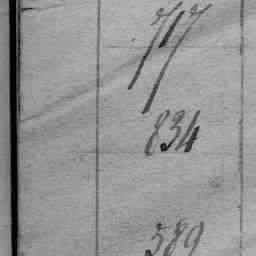 717
834
589